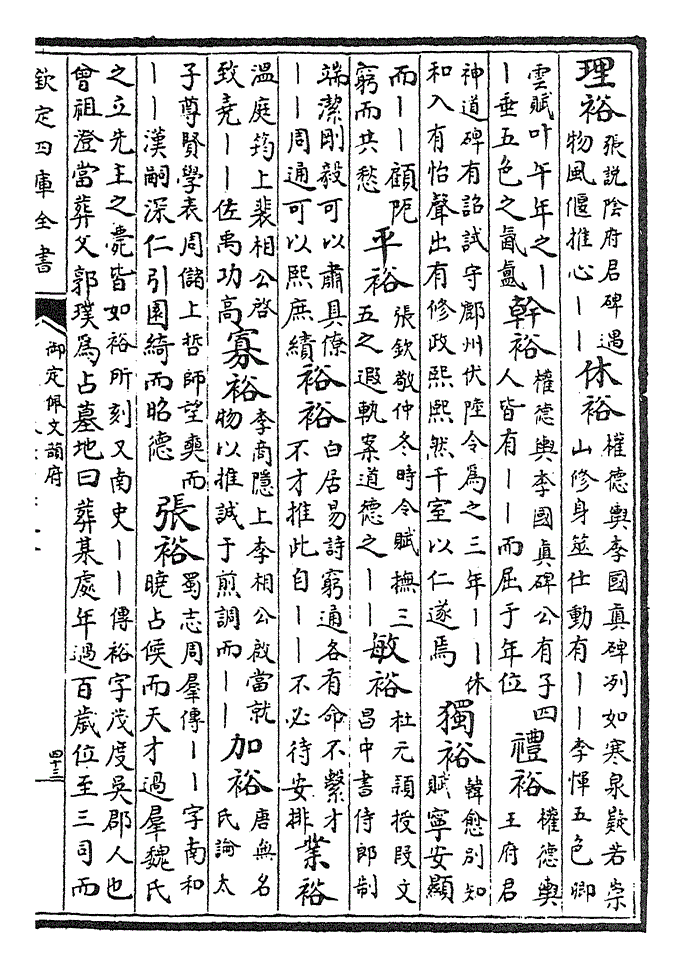 理裕 張說隂府君碑遇
物風偃推心丨丨
休裕 權德輿李國真碑冽如寒泉嶷若崇
山修身筮仕動有丨丨李惲五色卿
雲賦叶午年之丨
丨垂五色之氤氳
幹裕 權德輿李國真碑公有子四
人皆有丨丨而屈于年位
禮裕 權德輿
王府君
神道碑有詔試守鄜州伏陸令爲之三年丨丨休
和入有怡聲出有修政熙熙然千室以仁遂焉
獨裕 韓愈别知
賦寧安顯
而丨丨顧阨
窮而共愁
平裕 張欽敬仲冬時令賦撫三
五之遐軌案道德之丨丨
敏裕 杜元頴授段文
昌中書侍郎制
端潔剛毅可以肅具僚
丨丨周通可以熙庶績
裕裕 白居易詩窮通各有命不繫才
不才推此自丨丨不必待安排
業裕
溫庭筠上裴相公啓
致堯丨丨佐禹功高
寡裕 李商隱上李相公啟當就
物以推誠于煎調而丨丨
加裕 唐無名
氏論太
子尊賢學表周儲上哲師望奭而
丨丨漢嗣深仁引園綺而昭德
張裕 蜀志周羣傳丨丨字南和
曉占候而天才過羣魏氏
之立先主之薨皆如裕所刻又南史丨丨傳裕字茂度吳郡人也
曾祖澄當葬父郭璞爲占墓地曰葬某處年過百歲位至三司而
欽定四庫全書
御定佩文韻府
四十三